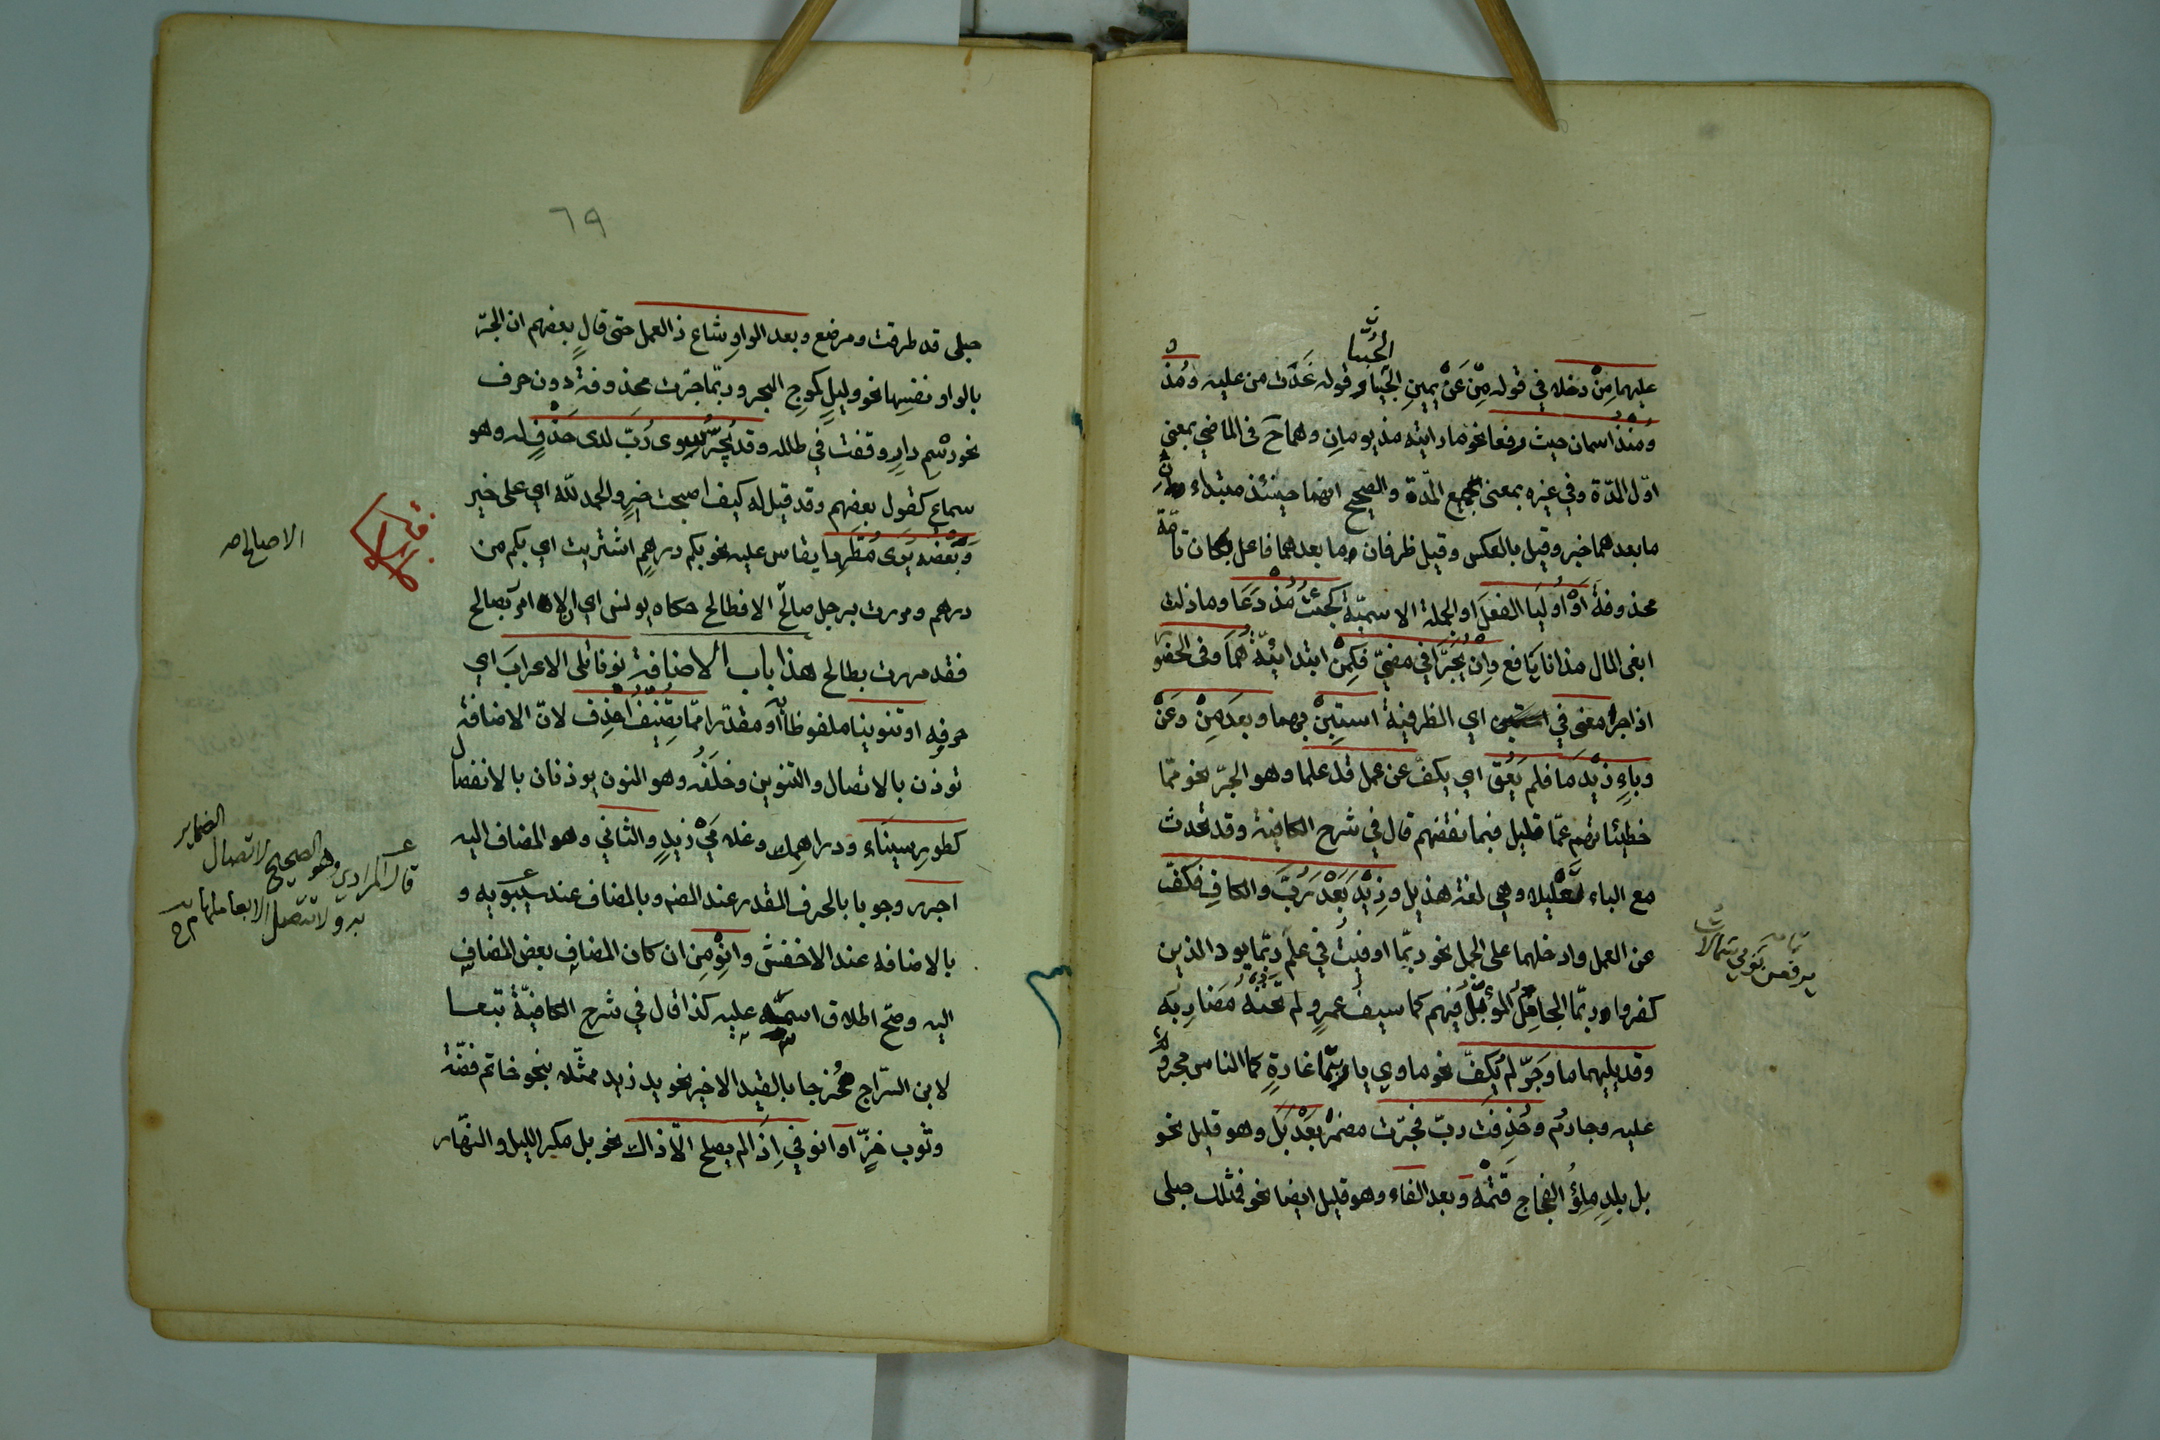 الحُبيّا
عليهما مِنْ دخله في قوله مِنْ عَنْ يمينِ الحُبيّا وقوله غَدَت من عليه وَمُذْ
وَمُنْذُ اسمان حيث رفعا نحو ما رايته مذ يومان وهما ح في الماضي بمعنى
اوّل المدّة وفي غيره بمعنى جميع المدّة والصحيح انهما حينئذ مبتداء
ما بعدهما خبر وقيل بالعكس وقيل ظرفان وما بعدهما فاعل بكان تامّة
محذوفة اَوْ اُولِيَا الفعلَ او الجملة الاسميّة كجئتُ مُذْ دَعَا وما زلت
ابغي المال مذ انا يافع وَاِنْ يَجُرَّا في مضيّ فَكَمِنْ ابتدائيّة هُمَا وفي الحضور
اذا جرا معنى في اي الظرفية استبِنْ بهما وبعدَ مِنْ وعَنْ
وباءٍ زِيْدَ مَا فلم يَعُق اي يكف عن عمل قد علما وهو الجرّ نحو ممّا
خطيئاتهم عمّا قليل فبما نقضهم قال في شرح الكافية وقد تحدث
مع الباء تقليلا وهي لغة هذيل وَزِيْدَ بَعْدَ رُبَّ والكافِ فكفّت
عن العمل وادخلهما على الجمل نحو ربّما اوفيتُ في عَلَم ربّما يود الذين
كفروا ربّما الجاملُ المؤبّلُ فيهم كما سيفُ عمرٍو لم تخنْهُ مَضَارِبُه
وقد يليهما ما وَجَرّ لم يُكَفّ نحو ماوي يا ربّتما غارةٍ كما الناس مجروم
عليه وجارم وَحُذِفَت ربّ فجرّت مضمرْ بَعْدَ بَل وهو قليل نحو
بل بلدٍ مِلؤُ الفجاج قَتَمُهْ وبعد الفاء وهو قليل ايضا نحو فمثلك حبلى
يرقعن ثوبي شمالات
٦٩
حبلى قد طرقت ومرضع وبعد الواو شاع ذا العمل حتى قال بعضهم ان الجرّ
بالواو نفسها نحو وليلٍ كموج البحر وربّما جرّت محذوفة دون حرف
نحو رسْمِ دارٍ وقفت في طلله وقد يُجَرُّ بِسِوى رُبَّ لدى حَذْفٍ له وهو
سماع كقول بعضهم وقد قيل له كيف اصبحت خيرٍ والحمد لله اي على خير
وَبَعْضُه يُرَى مُطَّرِدا يقاس عليه نحو بكم درهمٍ اشتريت اي بكم من
درهم ومررت برجل صالح الا فطالح حكاه يونس اي ان لا امرّ بصالح
فقد مررت بطالح هذا باب الاضافة نونا تلى الاعرابَ اي
حرفِه او تنوينا ملفوظا به او مقدّرا ممّا تُضِيْفُ احْذِف لانّ الاضافة
تؤذن بالاتصال والتنوين وخلَفُه وهو النون يوذنان بالانفصال
كطورِ سينَاء ودراهمِك وغلامَيْ زيدٍ والثاني وهو المضاف اليه
اجرر وجوبا بالحرف المقدر عند المص وبالمضاف عند سيبويه و
بالاضافة عند الاخفش وانوِ مِن ان كان المضاف بعض المضاف
اليه وصحّ اطلاق اسمه عليه كذا قال في شرح الكافيّة تبعا
لابن السرّاج مُخرجا بالقيد الاخير نحو يد زيد ممثّله بنحو خاتم فضّة
وثوب خزٍّ اَو انو في اِذَا لم يصلح الّا ذاك نحو بل مكر الليل والنهار
قال المرادي وهو الصحيح لاتصال الضماير
به ولا تتصل الا بعاملها